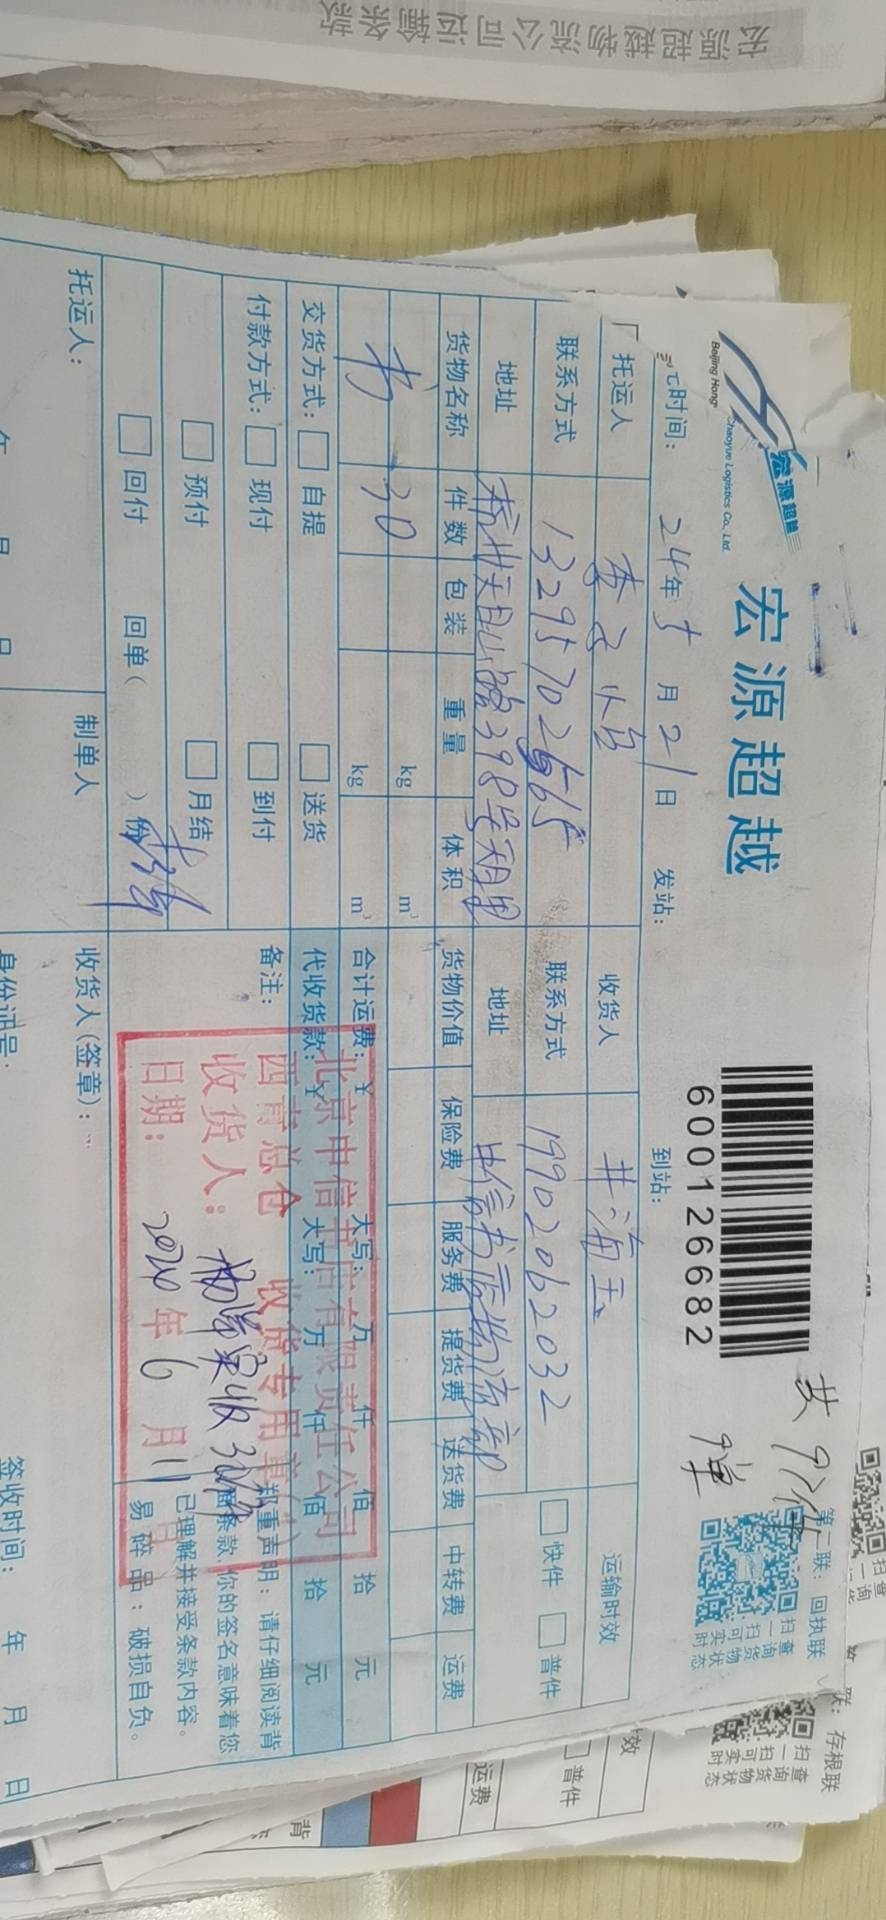 宏源超越物流公司运输条款
宏源超越
Chaoyue Logistics Co., Ltd.
宏源超越
600126682
共9件
第二联：回执联
扫一扫可实时
查询货物状态
时间： 24年5月21日
发站：
到站：
托运人
收货人 井海玉
运输时效
联系方式
联系方式 19902062032
快件 普件
地址 杭州天目山路398号
地址 中信书店物流部
货物名称 件数 包装 重量 体积 货物价值 保险费 服务费 提货费 送货费 中转费 运费
书 30 kg m³
kg m³
合计运费：￥ 大写： 万 仟 佰 拾 元
交货方式： 自提 送货
代收货款：￥ 大写： 万 仟 佰 拾 元
付款方式： 现付 到付
备注：
预付 月结
回付 回单（ ）份
郑重声明：请仔细阅读背
面条款，你的签名意味着您
已理解并接受条款内容。
易碎品：破损自负。
北京中信书店有限责任公司
西南总仓 收货专用章
收货人： 收30件
日期： 2024年6月11
托运人：
制单人
收货人（签章）：
年 月 日
身份证号：
签收时间： 年 月 日
存根联
扫一扫可实时
查询货物状态
普件
运费